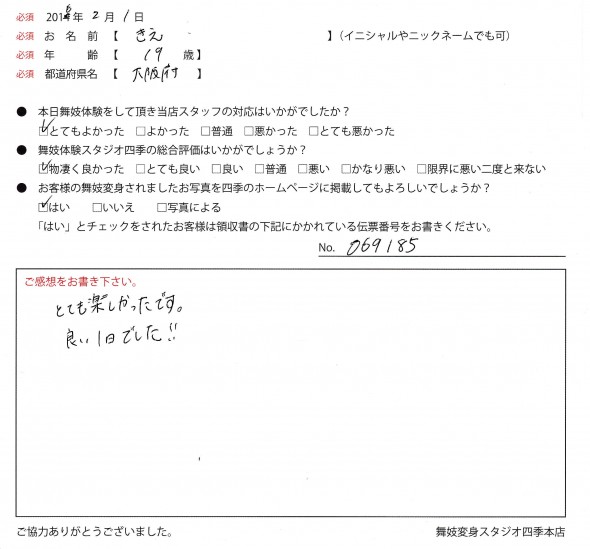 必須 2016年2月1日
必須 お名前【 きえ 】(イニシャルやニックネームでも可)
必須 年齢【 19 歳】
必須 都道府県名【 大阪府 】
● 本日舞妓体験をして頂き当店スタッフの対応はいかがでしたか?
☑とてもよかった □よかった □普通 □悪かった □とても悪かった
● 舞妓体験スタジオ四季の総合評価はいかがでしょうか?
☑物凄く良かった □とても良い □良い □普通 □悪い □かなり悪い □限界に悪い二度と来ない
● お客様の舞妓変身されましたお写真を四季のホームページに掲載してもよろしいでしょうか?
☑はい □いいえ □写真による
「はい」とチェックをされたお客様は領収書の下記にかかれている伝票番号をお書きください。
No. 069185
ご感想をお書き下さい。
とても楽しかったです。
良い1日でした!!
ご協力ありがとうございました。 舞妓変身スタジオ四季本店